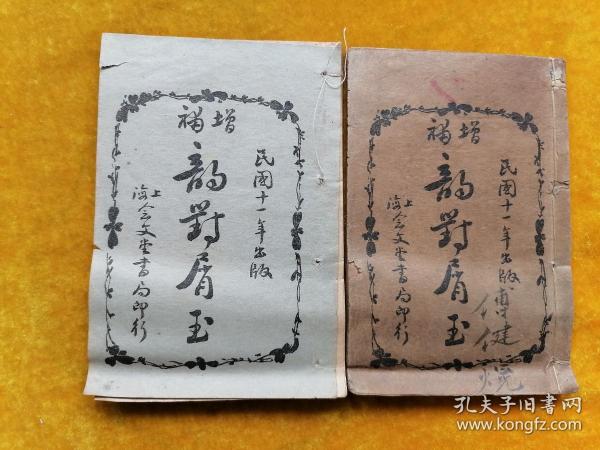 增補
韻對屑玉
民國十一年出版
上海会文堂書局印行
增補
韻對屑玉
民國十一年出版
上海会文堂書局印行
傅健
孔夫子旧書网
www.kongfz.com